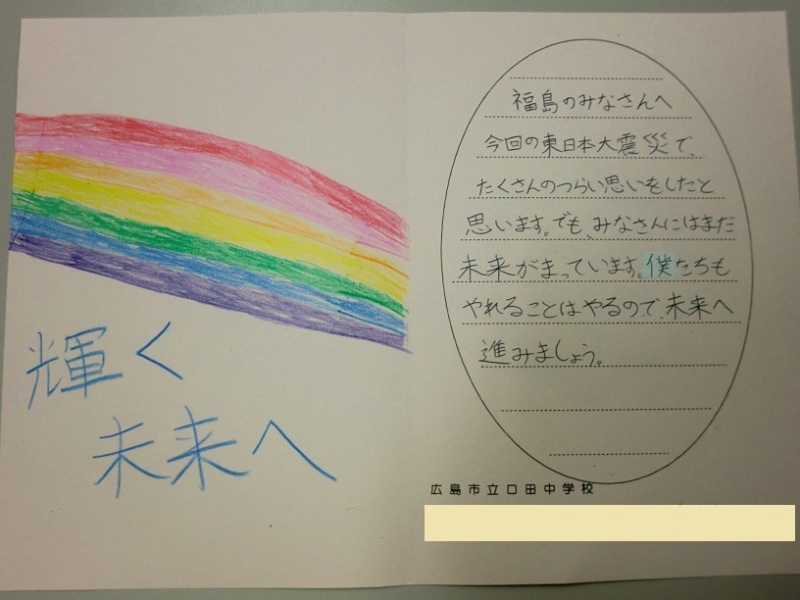 輝く
未来へ
福島のみなさんへ
今回の東日本大震災で、
たくさんのつらい思いをしたと
思います。でも、みなさんにはまだ
未来がまっています。僕たちも
やれることはやるので、未来へ
進みましょう。
広島市立口田中学校